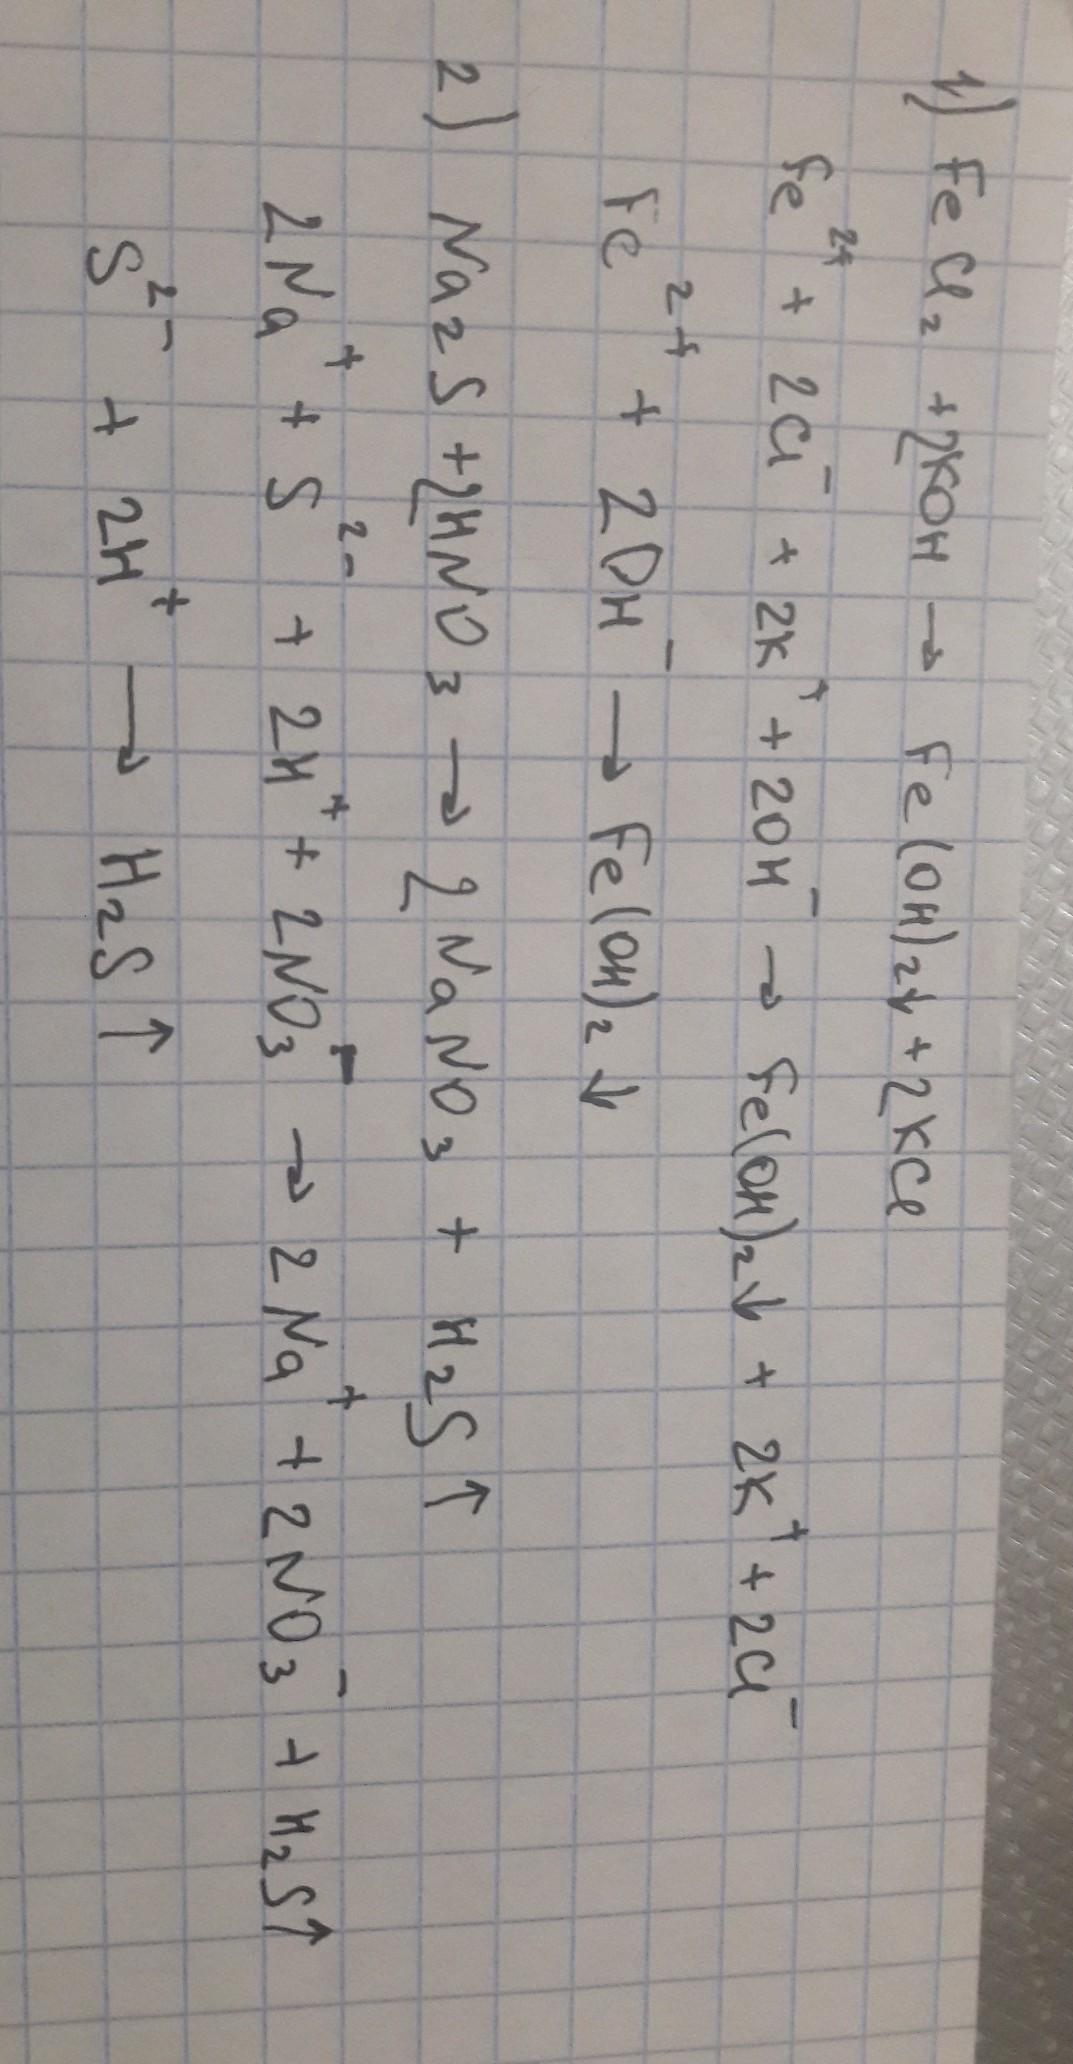 1) FeCl₂ + 2KOH → Fe(OH)₂↓ + 2KCl
Fe²⁺ + 2Cl⁻ + 2K⁺ + 2OH⁻ → Fe(OH)₂↓ + 2K⁺ + 2Cl⁻
Fe²⁺ + 2OH⁻ → Fe(OH)₂↓
2) Na₂S + 2HNO₃ → 2NaNO₃ + H₂S↑
2Na⁺ + S²⁻ + 2H⁺ + 2NO₃⁻ → 2Na⁺ + 2NO₃⁻ + H₂S↑
S²⁻ + 2H⁺ → H₂S↑